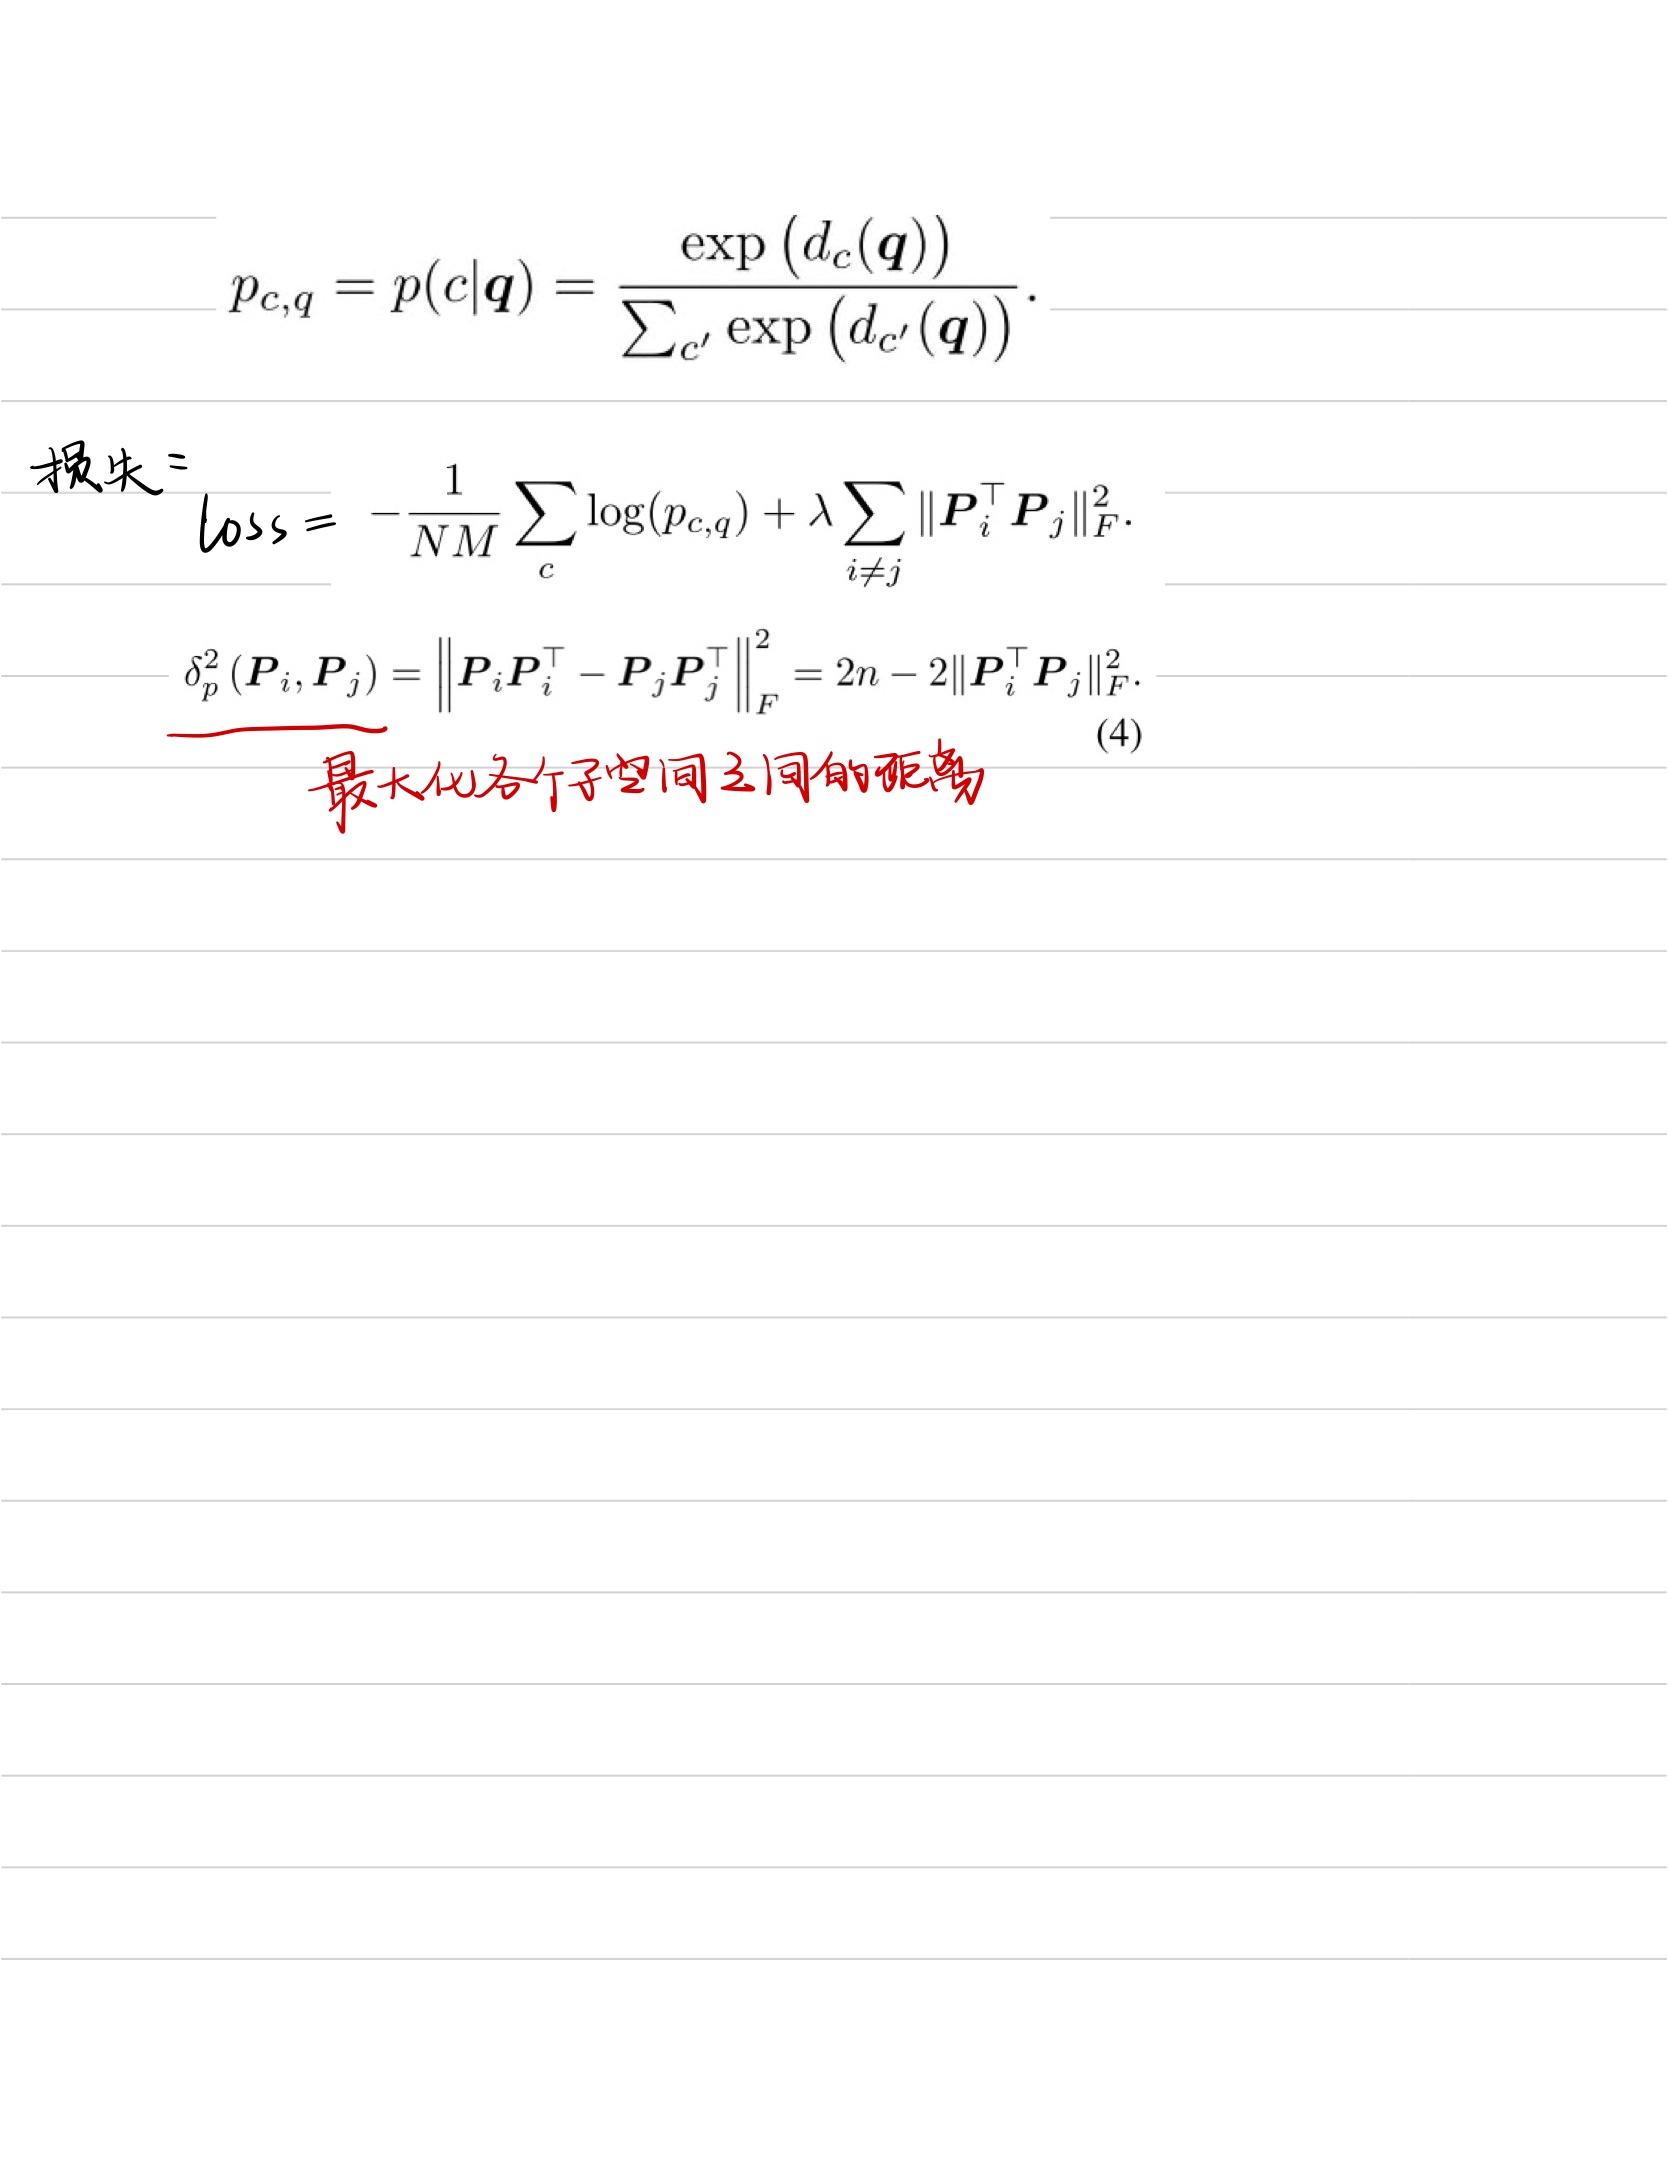 p_{c,q} = p(c|q) = \frac{\exp(d_c(q))}{\sum_{c'} \exp(d_{c'}(q))}.
损失=
Loss = -\frac{1}{NM} \sum_c \log(p_{c,q}) + λ \sum_{i≠j} ‖P_i^⊤ P_j‖_F^2.
δ_p^2 (P_i, P_j) = ‖P_i P_i^⊤ − P_j P_j^⊤‖_F^2 = 2n − 2‖P_i^⊤ P_j‖_F^2.
(4)
最大化各个子空间之间的距离